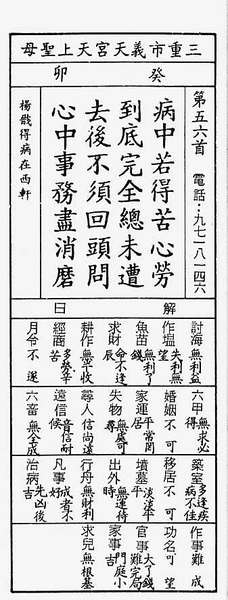 三重市義天宮天上聖母
癸卯
第五六首 電話：九七一八一四六
病中若得苦心勞
到底完全總未遭
去後不須回頭問
心中事務盡消磨
楊戩得病在西軒
解曰
討海無利益
作塩失利無望
魚苗無利了錢
求財命不逢辰
耕作無平收
經商多勞辛苦
月令不遂
六甲無求必得
婚姻不可
家運平常罔居
失物無處可尋
尋人信尚遠
遠信音信耐候
六畜無全成
築室多逢疾病不佳
移居不可
墳墓淡淡平平
出外無運待時
行舟無財利
凡事成者不好
治病先凶後吉
作事難成
功名不可望
官事大了錢難完局
家事門庭小吉
求兒無根基